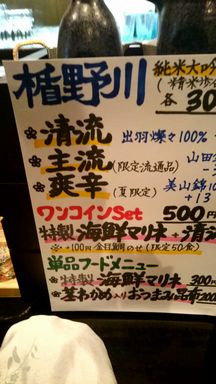 楯野川
純米大吟
(精米歩
各 30
※清流 出羽燦々100%
※主流 (限定流通品) 山田
※爽辛 (夏限定) 美山錦10
+13
ワンコインSet 500円
特製 海鮮マリネ + 清流
※+100円 金目鯛のせ(限定50食)
単品フードメニュー
※特製 海鮮マリネ 300円
※茎わかめ入りおつまみ昆布200